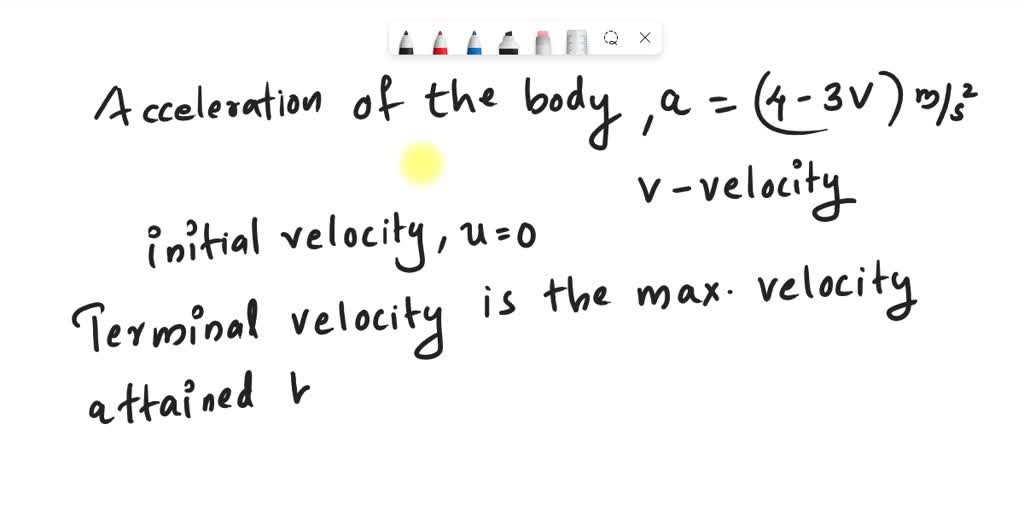 Acceleration of the body, a = (4-3V) m/s²
v-velocity
initial velocity, u=0
Terminal velocity is the max. velocity
attained